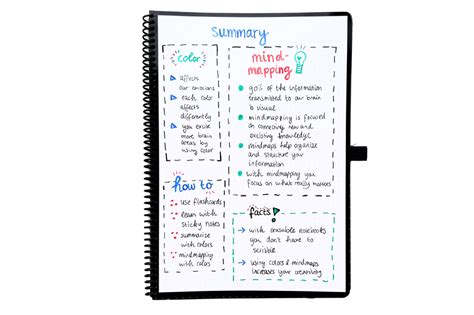 summary
color
affects
our emotions
each color
affects
differently
you excite
more brain
areas by
using color
mind-
mapping
90% of the information
transmitted to our brain
is visual
mindmapping is focused
on connecting new and
existing knowledge
mindmaps help organize
and structure your
information
with mindmapping you
focus on what really matters
how to
use flashcards
learn with
sticky notes
summarise
with colors
mindmapping
with colors
facts!
→ with erasable notebooks
you don't have to
scribble
→ using colors & mindmaps
increases your creativity